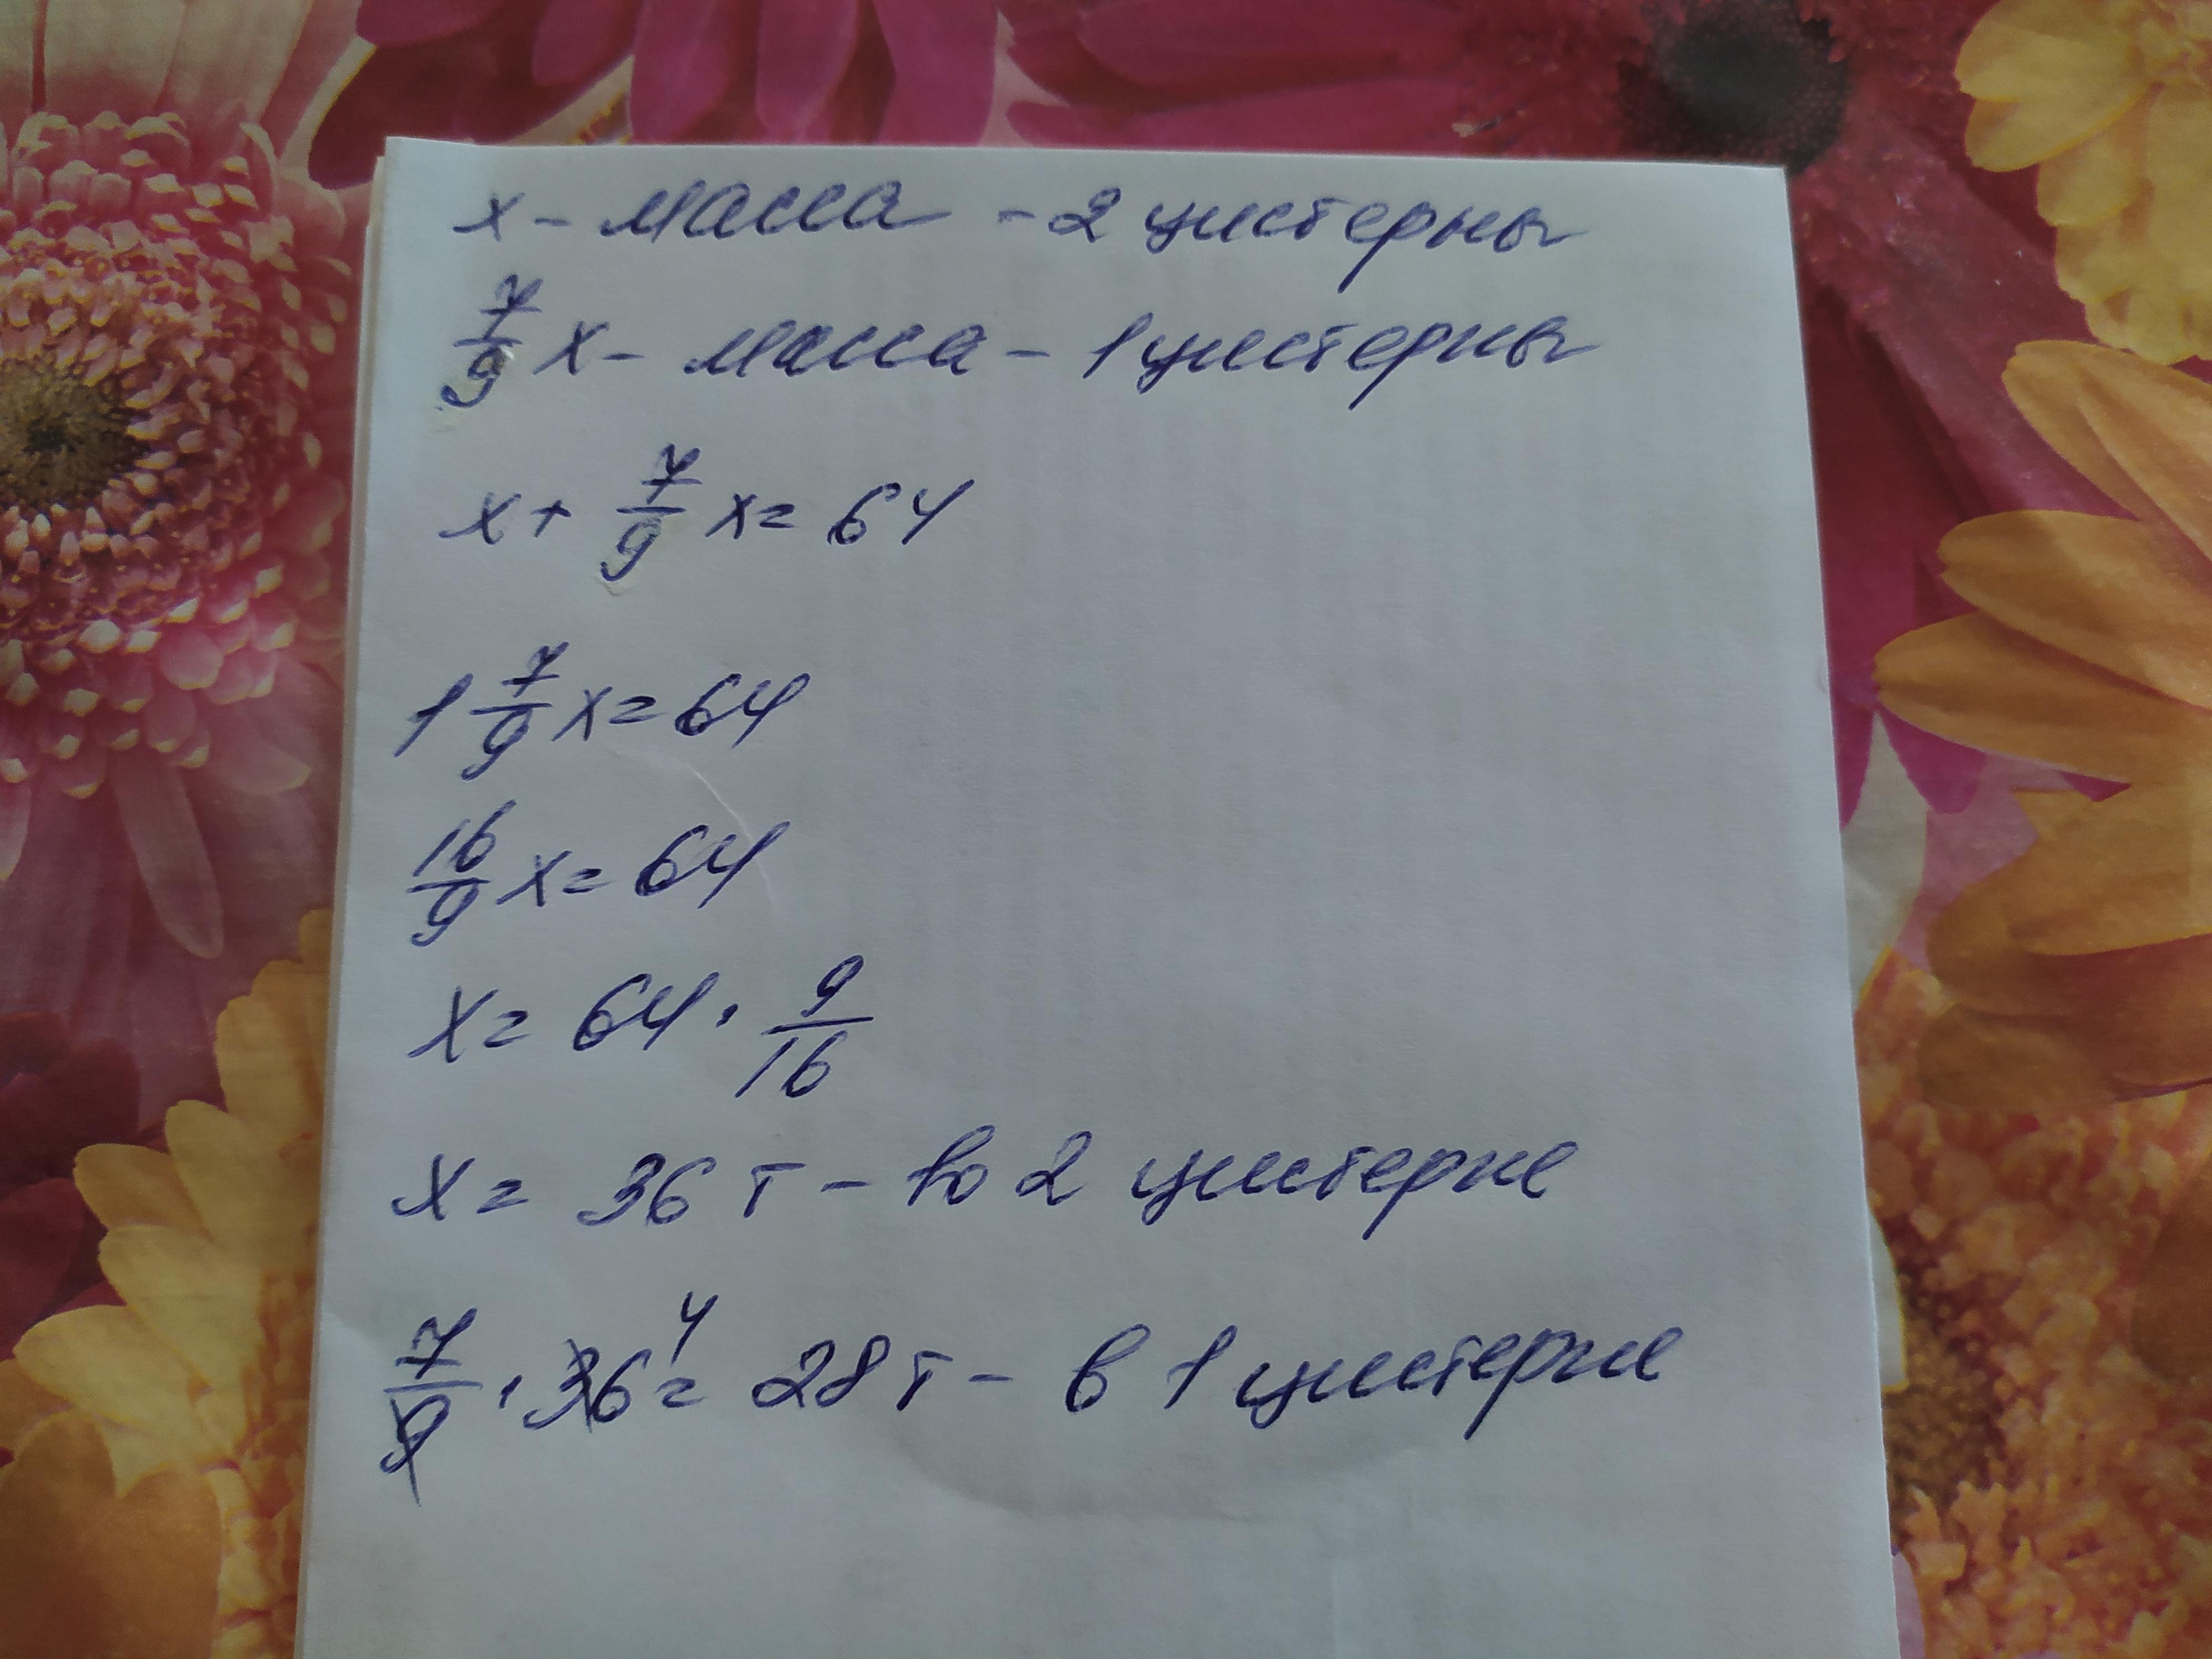 x - масса - 2 цистерны
7/9 x - масса - 1 цистерны
x + 7/9 x = 64
1 7/9 x = 64
16/9 x = 64
x = 64 · 9/16
x = 36 т - во 2 цистерне
7/9 · 36 4 = 28 т - в 1 цистерне